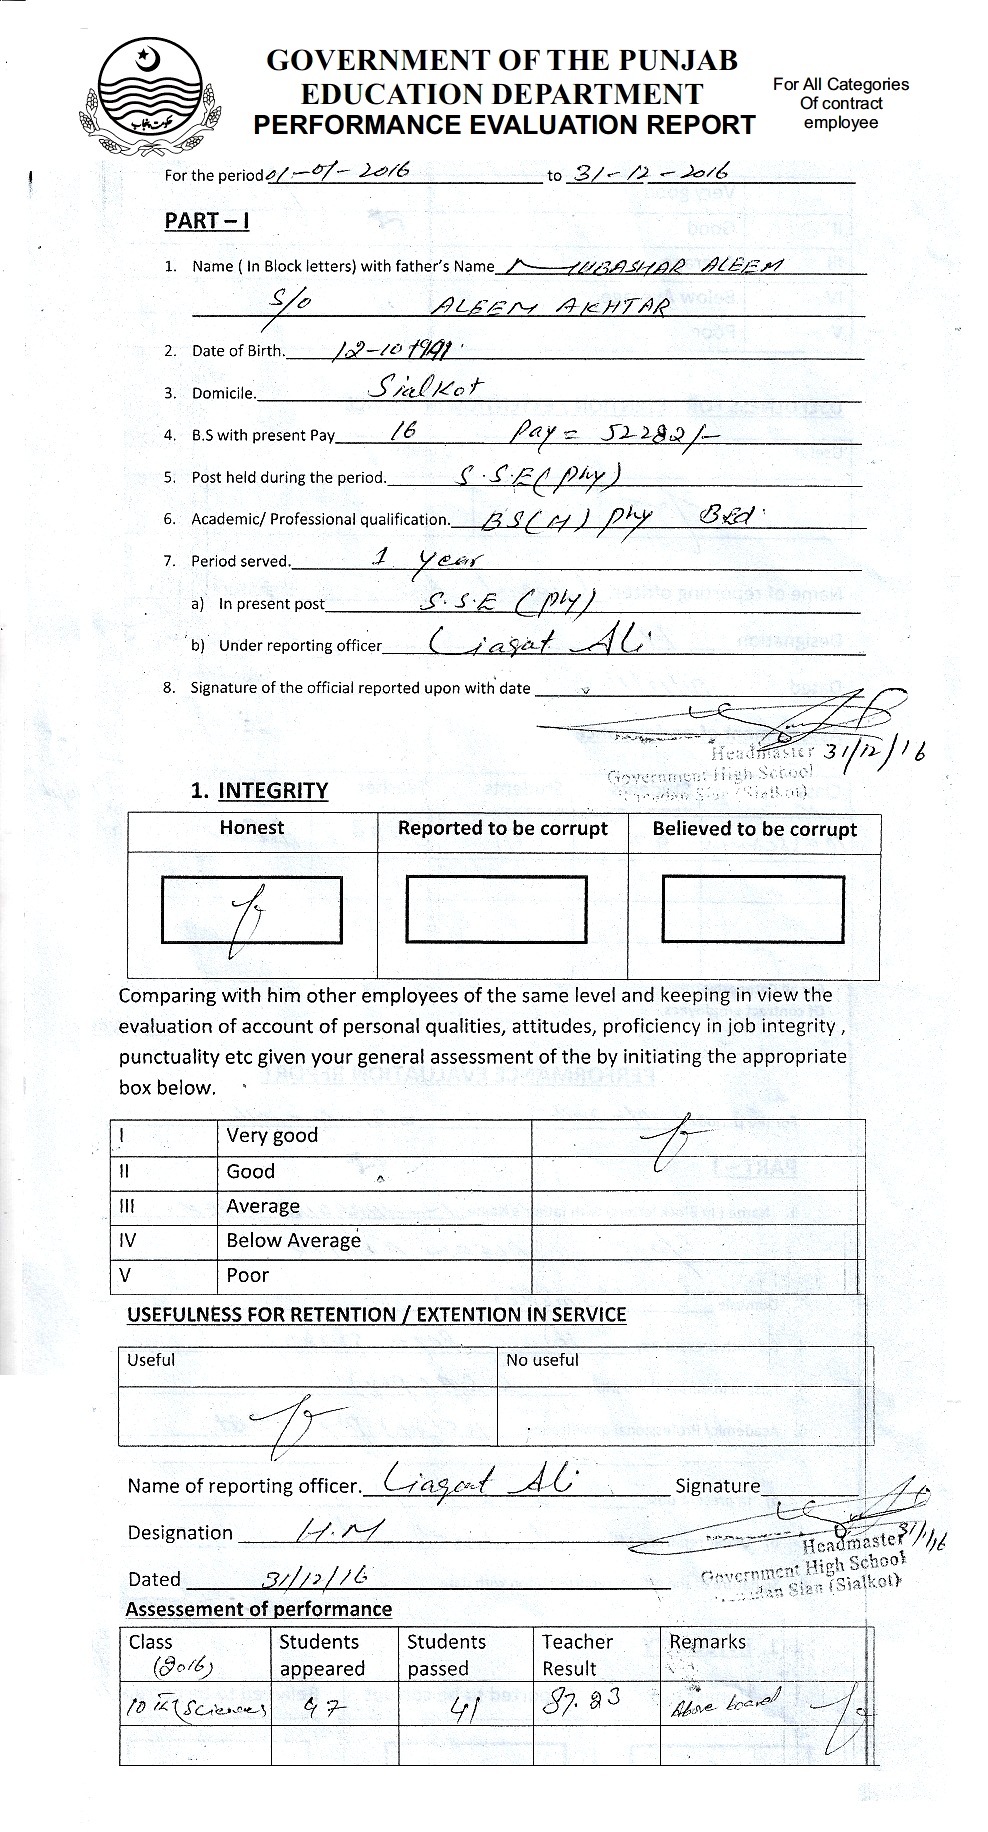 حکومت پنجاب
GOVERNMENT OF THE PUNJAB
EDUCATION DEPARTMENT
PERFORMANCE EVALUATION REPORT
For All Categories
Of contract
employee
For the period 01-01-2016 to 31-12-2016
PART – I
1. Name ( In Block letters) with father's Name MUBASHAR ALEEM
S/O ALEEM AKHTAR
2. Date of Birth. 12-10-1991
3. Domicile. Sialkot
4. B.S with present Pay 16 Pay = 52282/-
5. Post held during the period. S.S.E (Phy)
6. Academic/ Professional qualification. BS(H) Phy B.Ed
7. Period served. 1 year
a) In present post S.S.E (Phy)
b) Under reporting officer Liaqat Ali
8. Signature of the official reported upon with date
Headmaster 31/12/16
Government High School
Sian (Sialkot)
1. INTEGRITY
Honest Reported to be corrupt Believed to be corrupt
Comparing with him other employees of the same level and keeping in view the
evaluation of account of personal qualities, attitudes, proficiency in job integrity ,
punctuality etc given your general assessment of the by initiating the appropriate
box below.
I Very good
II Good
III Average
IV Below Average
V Poor
USEFULNESS FOR RETENTION / EXTENTION IN SERVICE
Useful No useful
Name of reporting officer. Liaqat Ali Signature
Designation H.M
Headmaster
Government High School
Dated 31/12/16
Sian (Sialkot)
Assessement of performance
Class Students Students Teacher Remarks
(2016) appeared passed Result
10th (Sciences) 47 41 87.23 Above board